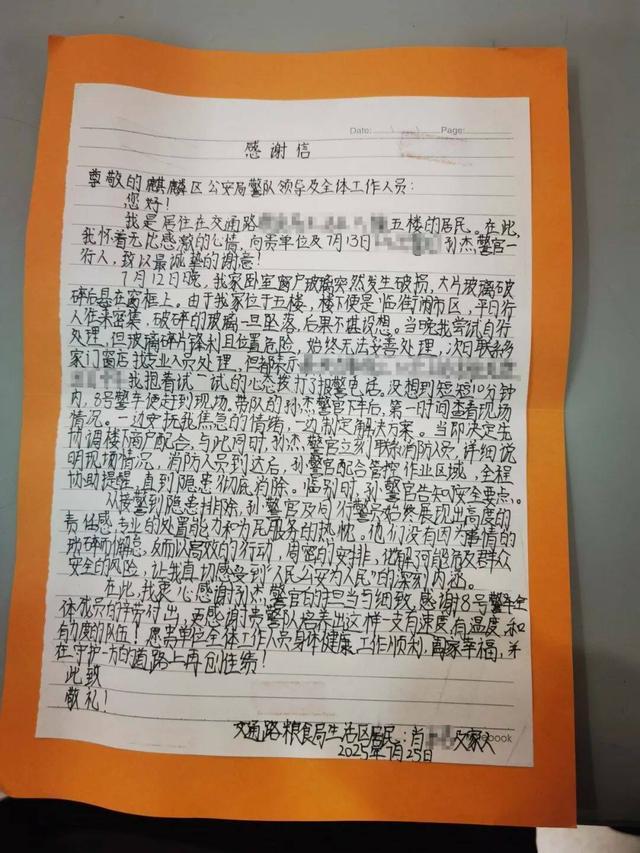 Date: / / Page:
感谢信
尊敬的麒麟区公安局警队领导及全体工作人员:
您好!
我是居住在交通路 五楼的居民。在此,
我怀着无比感激的心情,向贵单位及7月13日 孙杰警官一
行人,致以最诚挚的谢意!
7月12日晚,我家卧室窗户玻璃突然发生破损,大片玻璃破
碎后悬在窗框上。由于我家位于五楼,楼下便是临街闹市区,平日行
人往来密集,破碎的玻璃一旦坠落,后果不堪设想。当晚我尝试自行
处理,但玻璃碎片锋利且位置危险,始终无法妥善处理,次日联系多
家门窗店找专业人员处理,但都表示
我抱着试一试的心态拨打了报警电话,没想到短短10分钟
内,8号警车便赶到现场。带队的孙杰警官下车后,第一时间查看现场
情况。一边安抚我焦急的情绪,一边制定解决方案。当即决定先
协调楼下商户配合,与此同时,孙杰警官立刻联系消防人员,详细说
明现场情况,消防人员到达后,孙警官配合管控作业区域,全程
协助提醒,直到隐患彻底消除。临别时,孙警官告知安全要点。
从接警到隐患排除,孙警官及同行警员始终展现出高度的
责任感,专业的处置能力和为民服务的热忱。他们没有因为事情的
琐碎而懈怠,反而以高效的行动,周密的安排,化解可能危及群众
安全的风险,让我真切感受到"人民公安为人民"的深刻内涵。
在此,我衷心感谢孙杰警官的担当与细致,感谢8号警车全
体成员的辛劳付出,更感谢贵警队培养出这样一支有速度,有温度,和
有力度的队伍!愿贵单位全体工作人员身体健康,工作顺利,阖家幸福,并
在守护一方的道路上再创佳绩!
此致
敬礼!
交通路粮食局生活区居民:肖 及家人
2025年7月25日